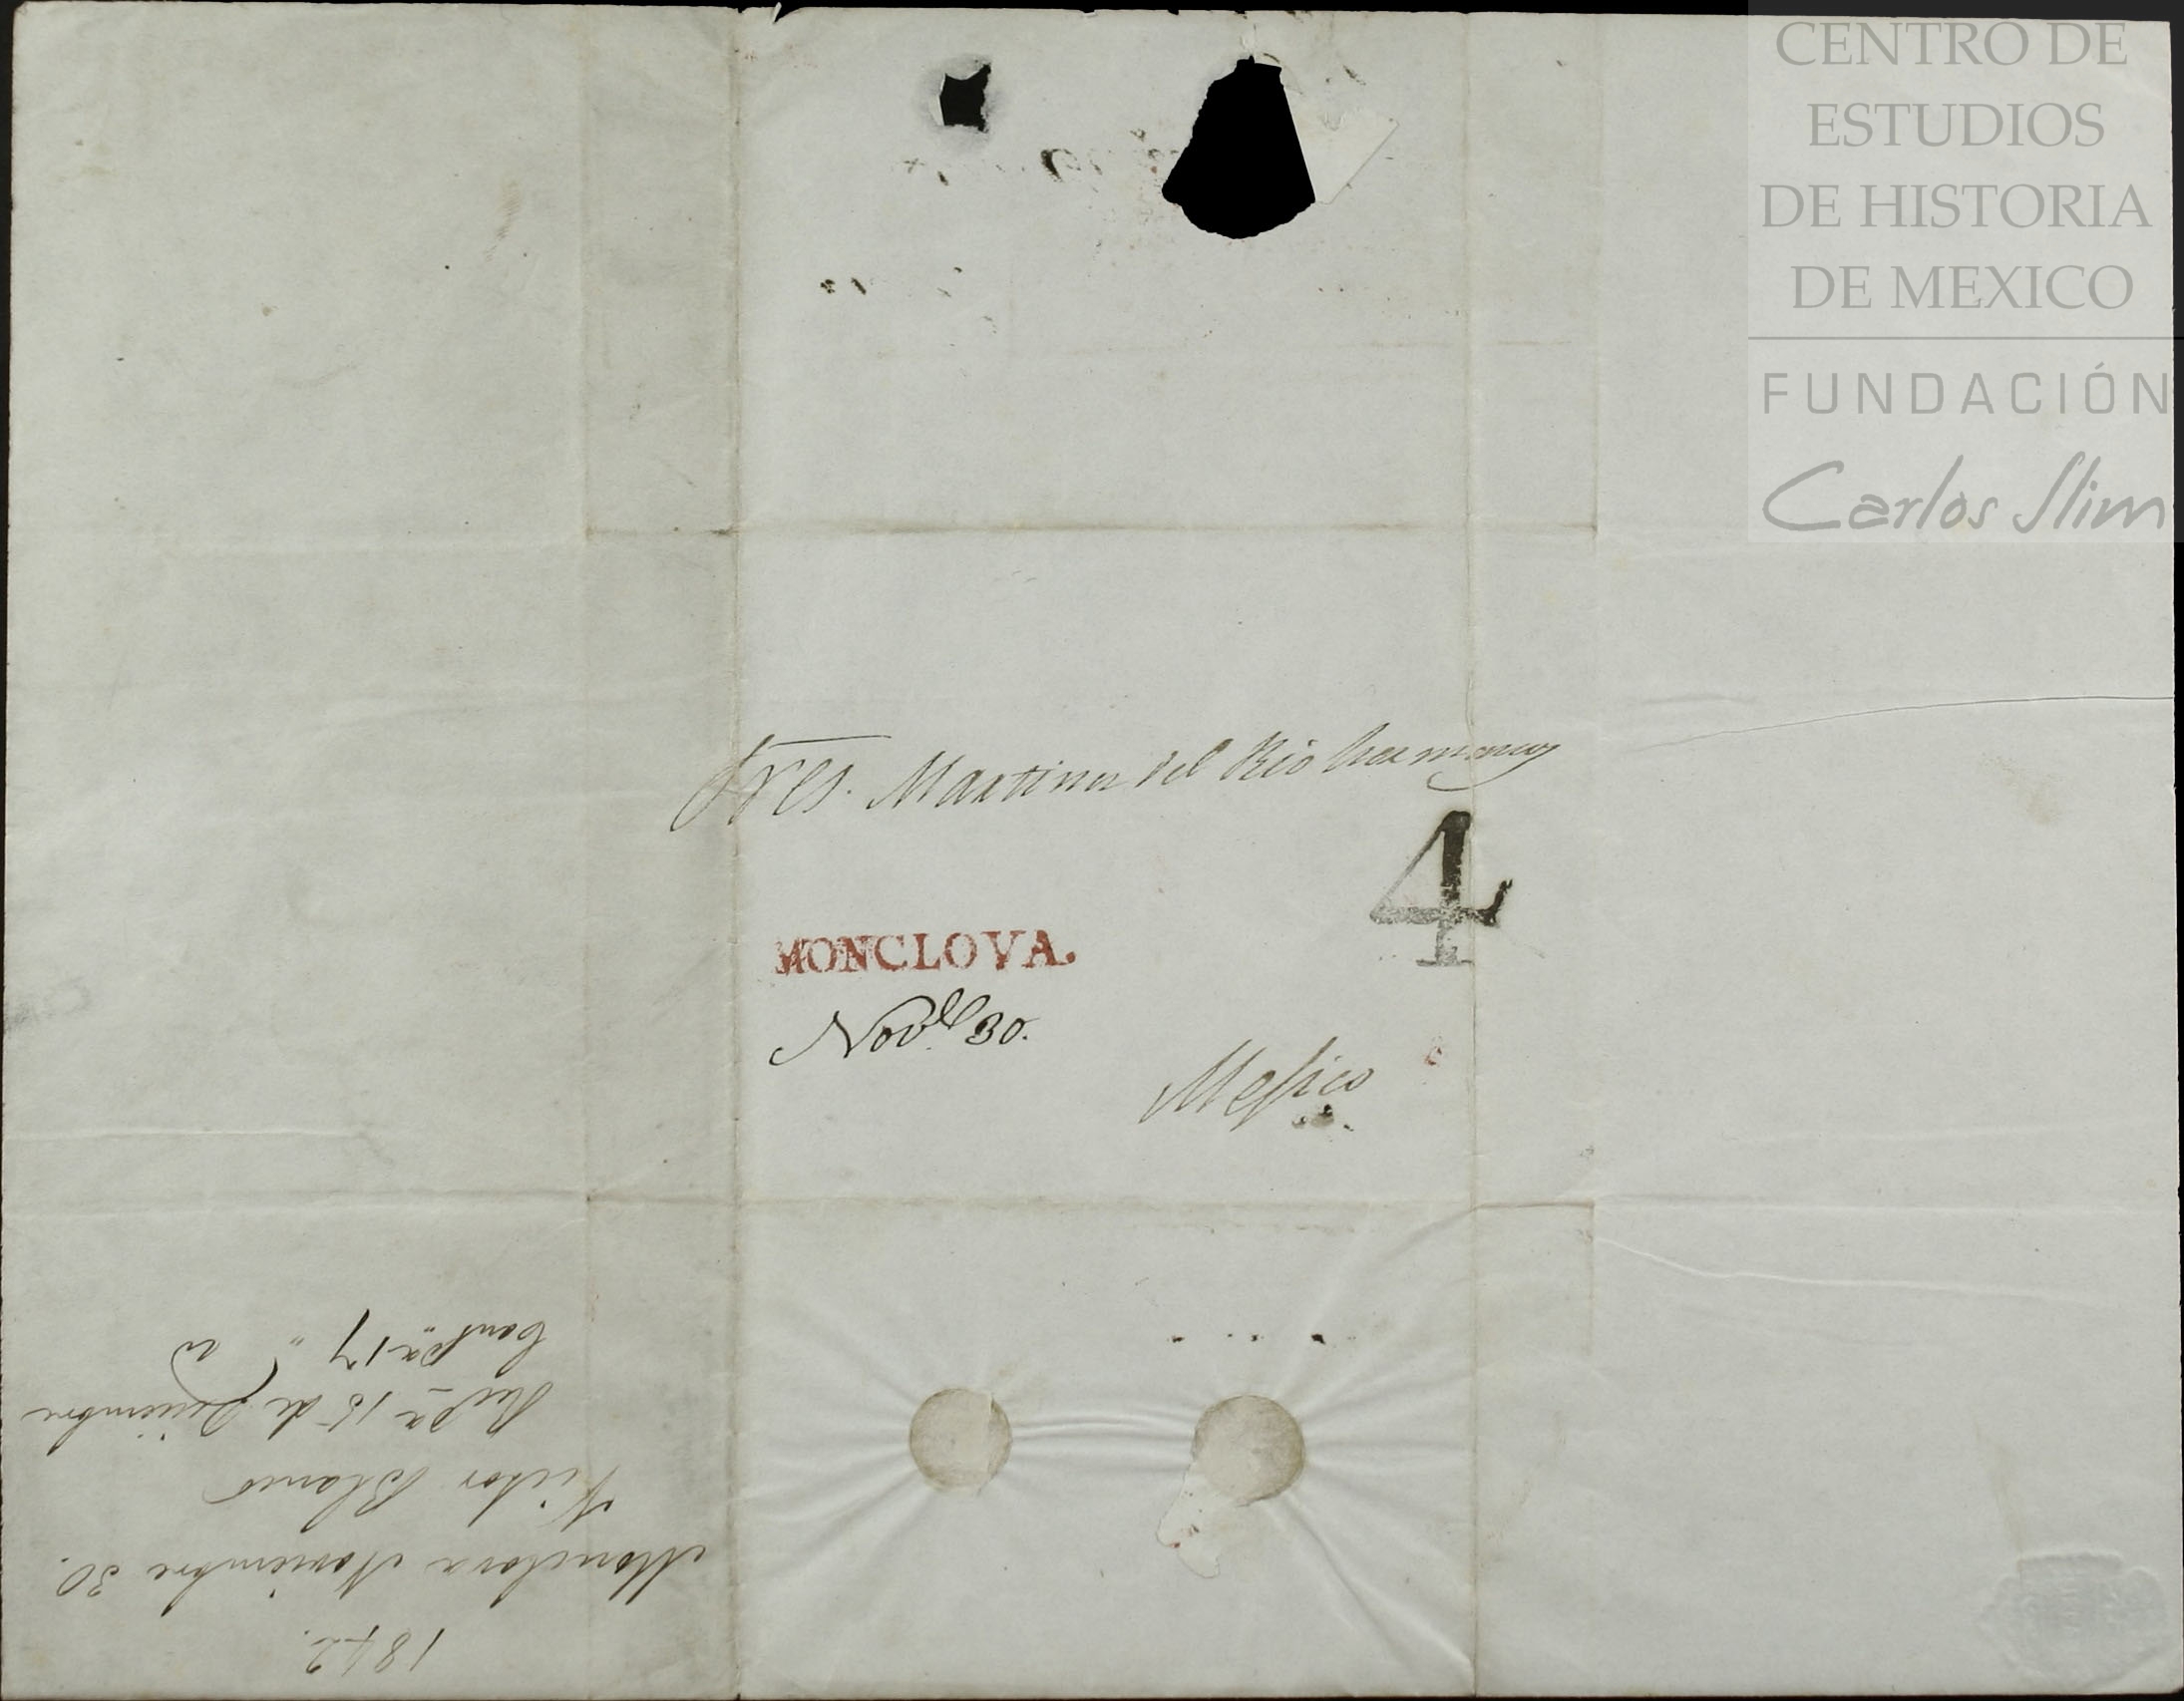 CENTRO DE
ESTUDIOS
DE HISTORIA
DE MEXICO
FUNDACIÓN
Carlos Slim
Sres. Martinez del Rio hermanos
4
MONCLOVA.
Nov.e 30.
Mejico
1842.
Monclova Noviembre 30.
Victor Blanco
Rec.da 15 de Diciembre
Cont.da 17 " "